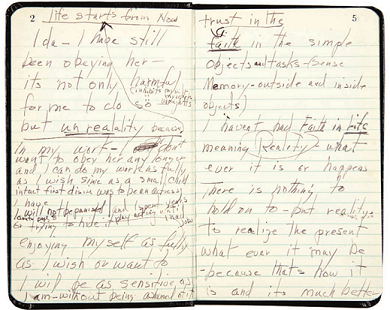 2 life starts from Now
Ida – I have still
been obeying her
its not only harmful
for me to do so
but unreality
In my work – I don't
want to obey her any longer
and I can do my work as fully
as I wish since as a small child
intact first desire was to be an actress
I have
I will not be punished
or trying to hide it
enjoying myself as fully
as I wish or want to
I will be as sensitive as I
am – without being ashamed of it
5
trust in the
faith in the simple
objects and tasks/sense
Memory – outside and inside
objects
I havent had Faith in Life
meaning Reality – what
ever it is or happens
There is nothing to
hold on to – but reality
to realize the present
what ever it may be
– because thats how it
is and its much better